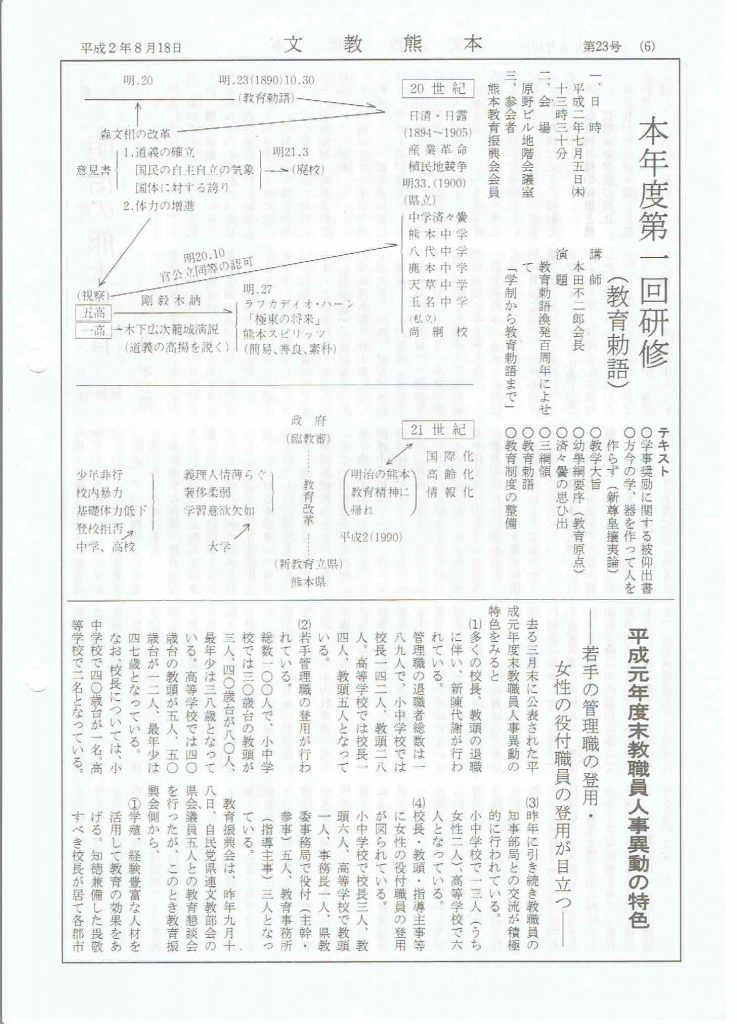 平成2年8月18日
文教熊本
第23号 (6)
本年度第一回研修
(教育勅語)
一、日 時
平成二年七月五日㈭
十三時三十分
二、会 場
原野ビル地階会議室
三、参会者
熊本教育振興会会員
講 師
本田不二郎会長
演 題
教育勅語渙発百周年によせ
て
「学制から教育勅語まで」
テキスト
○学事奨励に関する被仰出書
○方今の学、器を作って人を
作らず(新尊皇攘夷論)
○教学大旨
○幼學綱要序(教育原点)
○済々黌の思ひ出
○三綱領
○教育勅語
○教育制度の整備
明.20
明.23(1890)10.30
(教育勅語)
森文相の改革
意見書
1.道義の確立
国民の自主自立の気象
国体に対する誇り
2.体力の増進
明21.3
(廃校)
明20.10
官公立同等の認可
(視察)
五高
一高
剛毅木納
木下広次籠城演説
(道義の高揚を説く)
明.27
ラフカディオ・ハーン
「極東の将来」
熊本スピリッツ
(簡易、善良、素朴)
20世紀
日清・日露
(1894~1905)
産業革命
植民地競争
明33.(1900)
(県立)
中学済々黌
熊本中学
八代中学
鹿本中学
天草中学
玉名中学
(私立)
尚絅校
政府
(臨教審)
教育改革
(新教育立県)
熊本県
少年非行
校内暴力
基礎体力低下
登校拒否
中学、高校
義理人情薄らぐ
奢侈柔弱
学習意欲欠如
大学
21世紀
国際化
高齢化
情報化
明治の熊本
教育精神に
帰れ
平成2(1990)
平成元年度末教職員人事異動の特色
──若手の管理職の登用・
女性の役付職員の登用が目立つ──
去る三月末に公表された平
成元年度末教職員人事異動の
特色をみると
⑴多くの校長、教頭の退職
に伴い、新陳代謝が行わ
れている。
管理職の退職者総数は一
八九人で、小中学校では
校長一四二人、教頭二八
人。高等学校では校長一
四人、教頭五人となって
いる。
⑵若手管理職の登用が行わ
れている。
総数一〇〇人で、小中学
校では三〇歳台の教頭が
三人、四〇歳台が八〇人、
最年少は三八歳となって
いる。高等学校では四〇
歳台の教頭が五人、五〇
歳台が一二人、最年少は
四七歳となっている。
なお、校長については、小
中学校で四〇歳台が一名、高
等学校で二名となっている。
⑶昨年に引き続き教職員の
知事部局との交流が積極
的に行われている。
小中学校で一三人(うち
女性二人)高等学校で六
人となっている。
⑷校長・教頭・指導主事等
に女性の役付職員の登用
が図られている。
小中学校で校長三人、教
頭六人、高等学校で教頭
一人、事務長一人、県教
委事務局で役付(主幹・
参事)五人、教育事務所
(指導主事)三人となっ
ている。
教育振興会は、昨年九月十
八日、自民党県連文教部会の
県会議員五人との教育懇談会
を行ったが、このとき教育振
興会側から、
①学殖、経験豊富な人材を
活用して教育の効果をあ
げる。知徳兼備した畏敬
すべき校長が居て各郡市